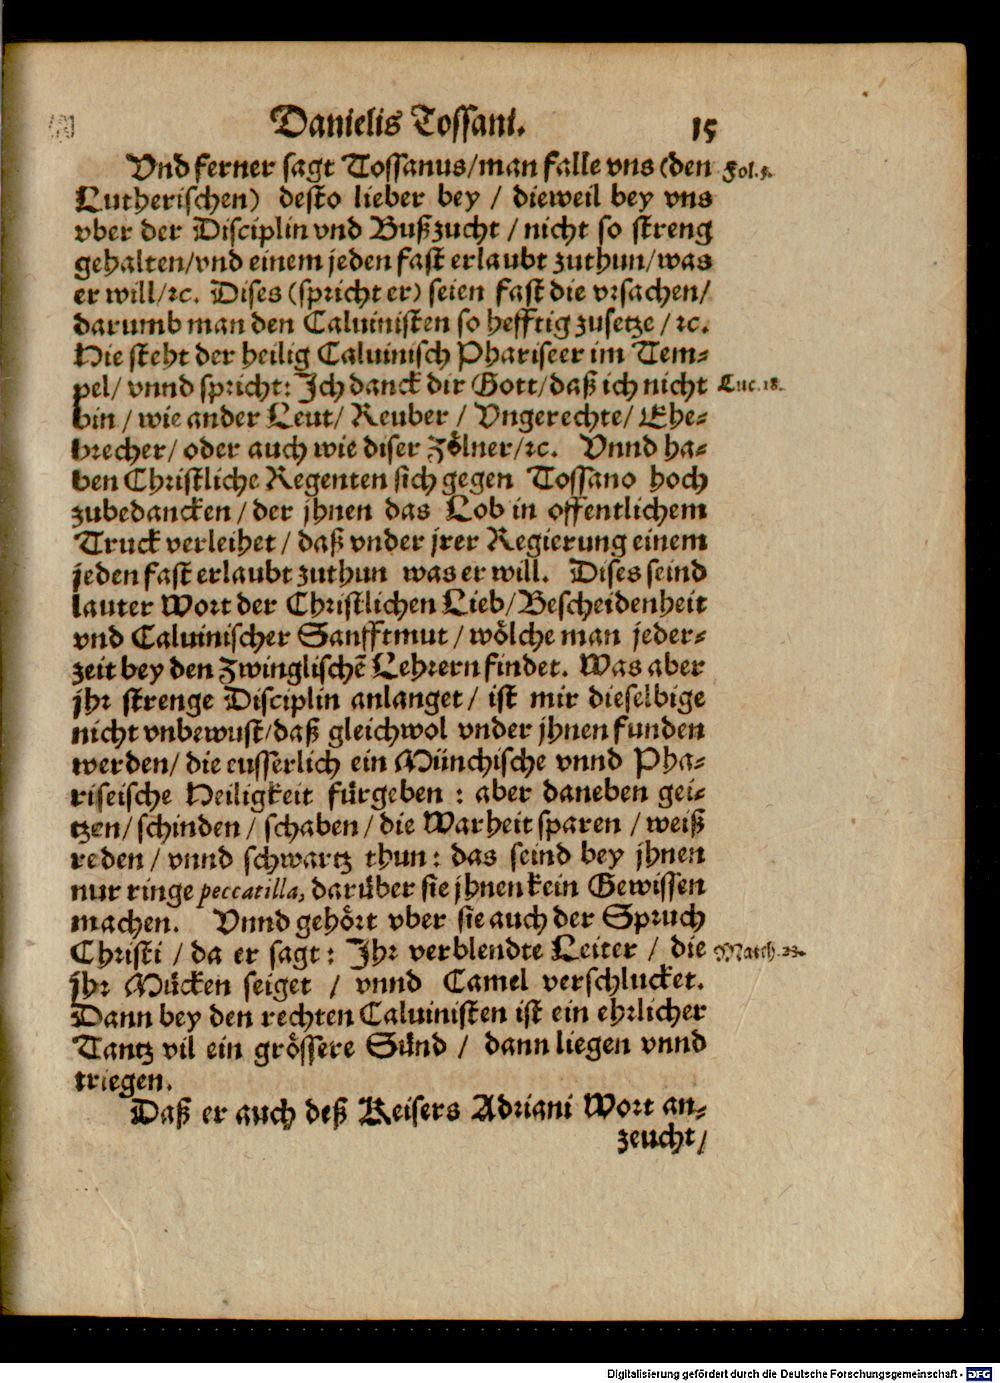 Danielis Tossani. 15
Vnd ferner sagt Tossanus/man falle vns (den Fol.5.
Lutherischen) desto lieber bey / dieweil bey vns
vber der Disciplin vnd Bußzucht / nicht so streng
gehalten/vnd einem jeden fast erlaubt zuthun/was
er will/ꝛc. Dises (spricht er) seien fast die vrsachen/
darumb man den Caluinisten so hefftig zusetze / ꝛc.
Hie steht der heilig Caluinisch Phariseer im Tem-
pel/ vnnd spricht: Ich danck dir Gott/daß ich nicht Luc.18.
bin / wie ander Leut/ Reuber / Vngerechte/ Ehe-
brecher/ oder auch wie diser Zölner/ꝛc. Vnnd ha-
ben Christliche Regenten sich gegen Tossano hoch
zubedancken / der jhnen das Lob in offentlichem
Truck verleihet / daß vnder jrer Regierung einem
jeden fast erlaubt zuthun was er will. Dises seind
lauter Wort der Christlichen Lieb/Bescheidenheit
vnd Caluinischer Sanfftmut / wölche man jeder-
zeit bey den Zwinglischē Lehrern findet. Was aber
jhr strenge Disciplin anlanget / ist mir dieselbige
nicht vnbewust/daß gleichwol vnder jhnen funden
werden/ die eusserlich ein Münchische vnnd Pha-
riseische Heiligkeit fürgeben : aber daneben gei-
tzen/ schinden / schaben / die Warheit sparen / weiß
reden / vnnd schwartz thun: das seind bey jhnen
nur ringe peccatilla, darüber sie jhnen kein Gewissen
machen. Vnnd gehört vber sie auch der Spruch
Christi / da er sagt: Ihr verblendte Leiter / die Matth.23.
jhr Mücken seiget / vnnd Camel verschlucket.
Dann bey den rechten Caluinisten ist ein ehrlicher
Tantz vil ein grössere Sünd / dann liegen vnnd
triegen.
Daß er auch deß Keisers Adriani Wort an-
zeucht/
Digitalisierung gefördert durch die Deutsche Forschungsgemeinschaft - DFG